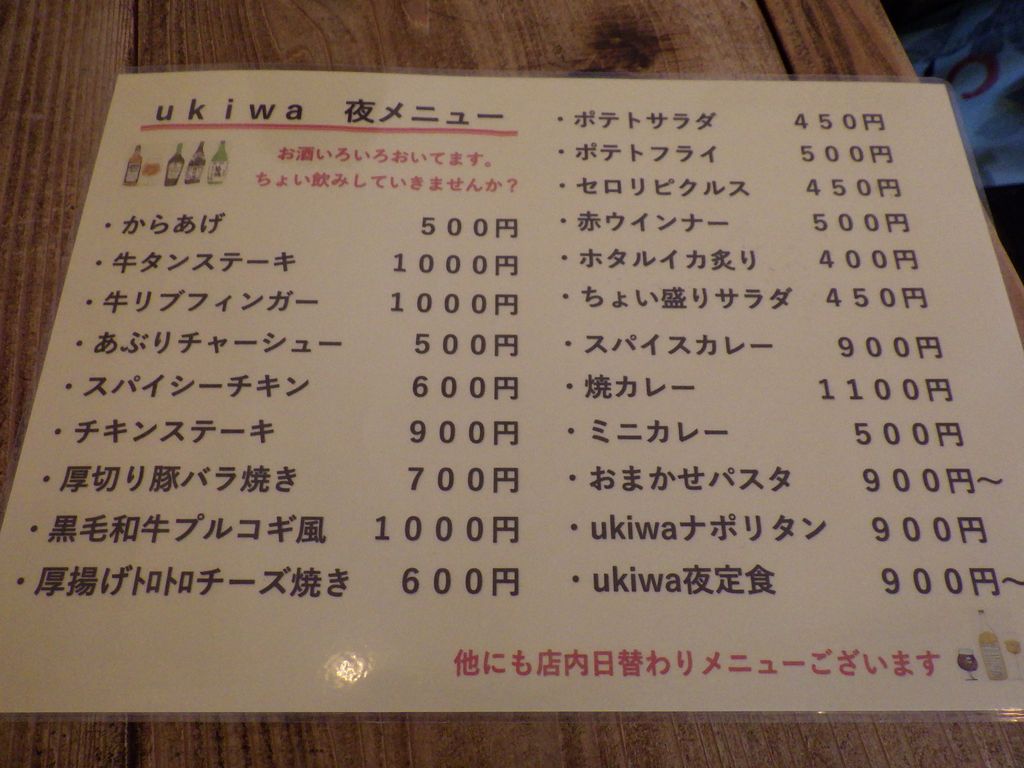 ukiwa 夜メニュー
お酒いろいろおいてます。
ちょい飲みしていきませんか？
・からあげ ５００円
・牛タンステーキ １０００円
・牛リブフィンガー １０００円
・あぶりチャーシュー ５００円
・スパイシーチキン ６００円
・チキンステーキ ９００円
・厚切り豚バラ焼き ７００円
・黒毛和牛プルコギ風 １０００円
・厚揚げﾄﾛﾄﾛチーズ焼き ６００円
・ポテトサラダ ４５０円
・ポテトフライ ５００円
・セロリピクルス ４５０円
・赤ウインナー ５００円
・ホタルイカ炙り ４００円
・ちょい盛りサラダ ４５０円
・スパイスカレー ９００円
・焼カレー １１００円
・ミニカレー ５００円
・おまかせパスタ ９００円～
・ukiwaナポリタン ９００円
・ukiwa夜定食 ９００円～
他にも店内日替わりメニューございます